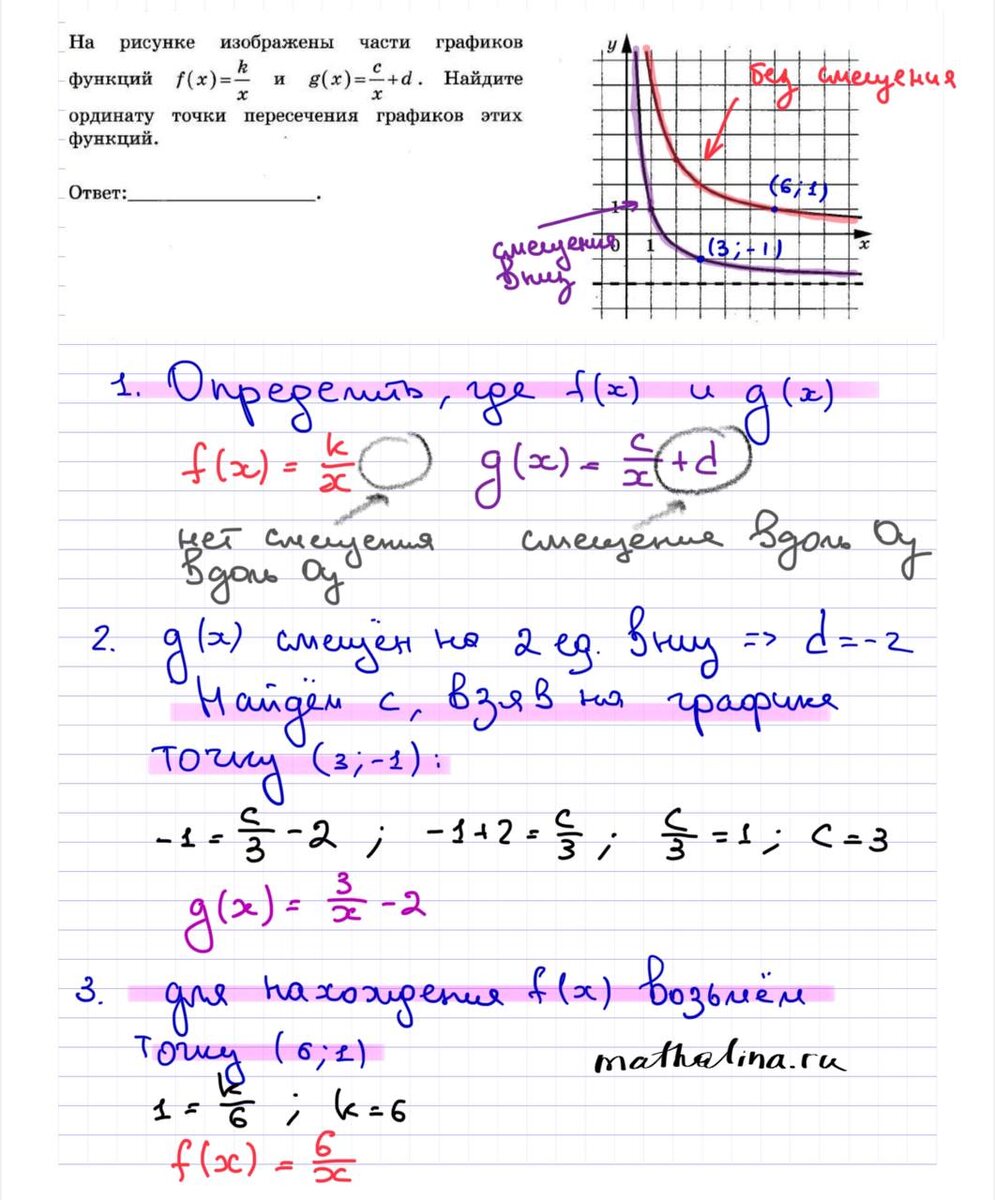 На рисунке изображены части графиков
функций f(x)=k/x и g(x)=c/x+d. Найдите
ординату точки пересечения графиков этих
функций.
Ответ:____________________.
y
без смещения
(6;1)
1
смещения
вниз
0
1
(3;-1)
x
1. Определить, где f(x) и g(x)
f(x) = k/x g(x) = c/x +d
нет смещения
вдоль Oy
смещение вдоль Oy
2. g(x) смещён на 2 ед. вниз => d=-2
Найдём c, взяв на графике
точку (3;-1):
-1 = c/3 -2 ; -1+2 = c/3 ; c/3 =1 ; c=3
g(x) = 3/x -2
3. для нахождения f(x) возьмём
точку (6;1)
mathalina.ru
1 = k/6 ; k=6
f(x) = 6/x